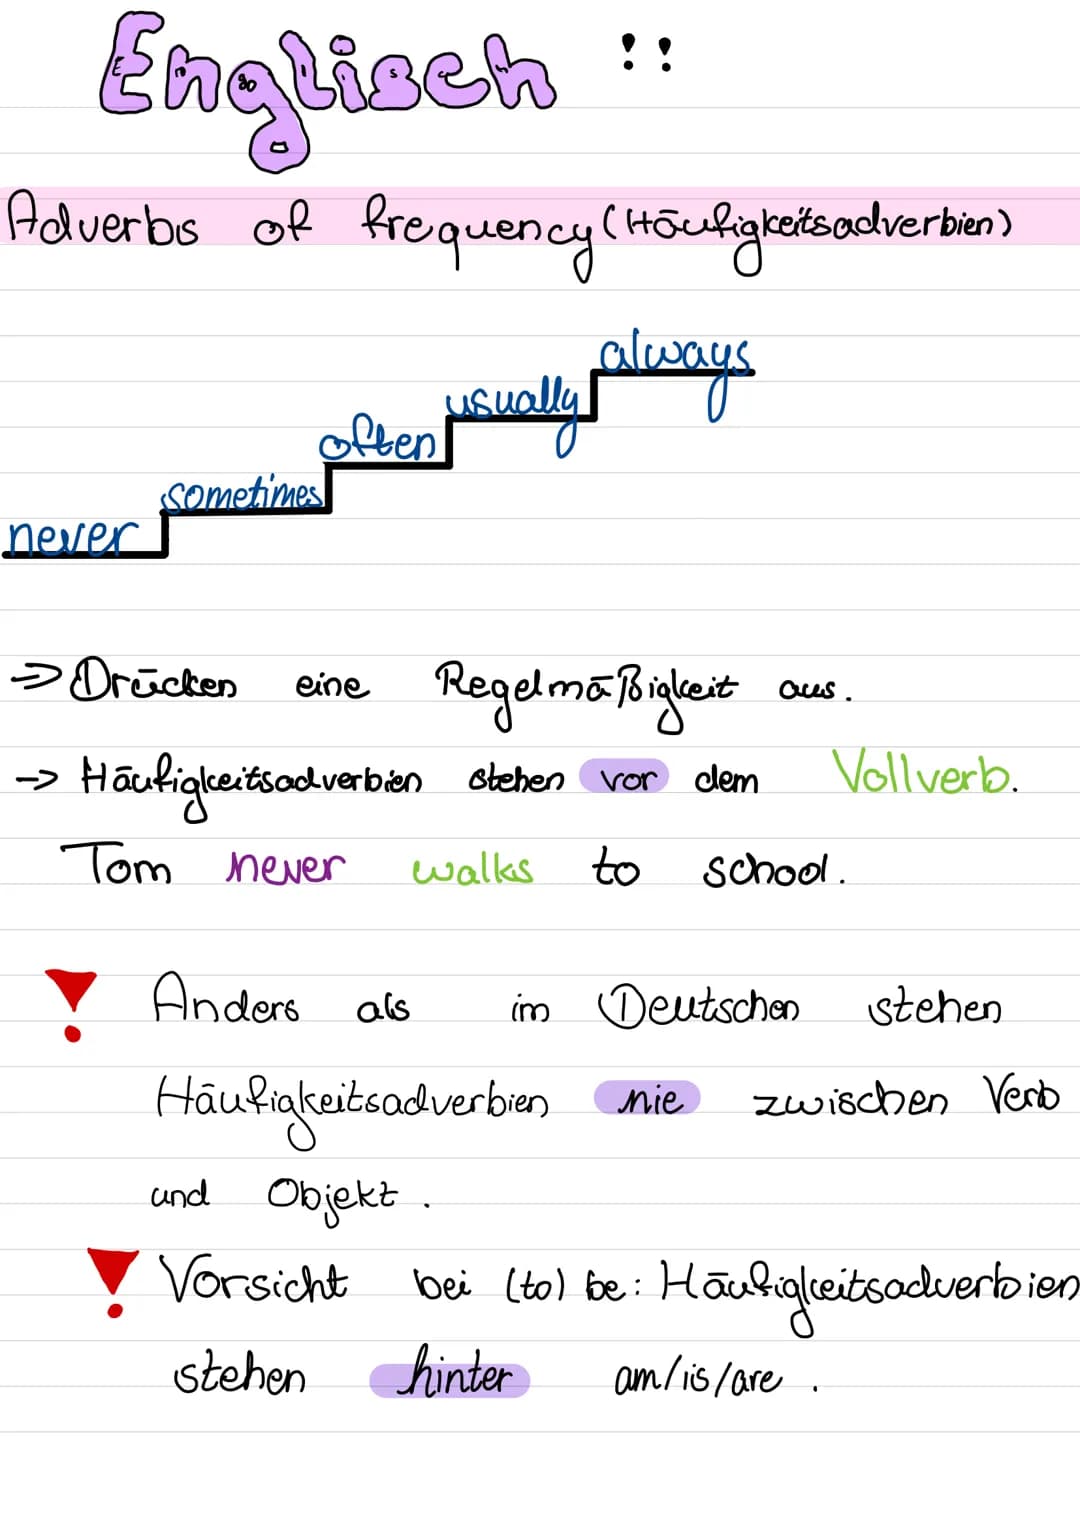 Englisch !!
Adverbs of frequency (Häufigkeitsadverbien)
always
usually
often
sometimes
never
=> Drücken eine Regelmäßigkeit aus.
-> Häufigkeitsadverbien stehen vor dem Vollverb.
Tom never walks to school.
! Anders als im Deutschen stehen
Häufigkeitsadverbien nie zwischen Verb
und Objekt.
! Vorsicht bei (to) be: Häufigkeitsadverbien
stehen hinter am/is/are.